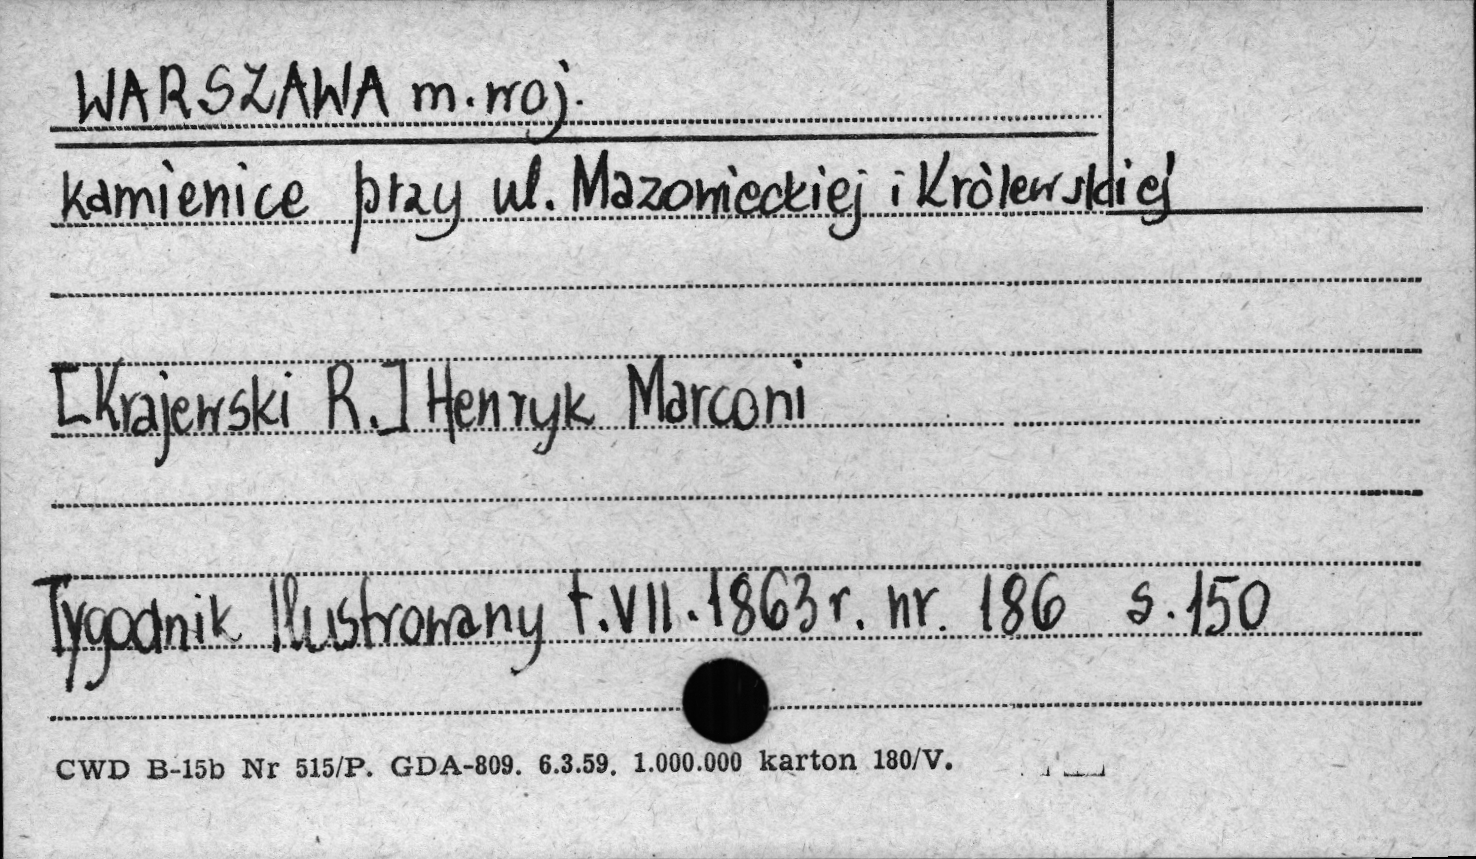 WARSZAWA m. woj.
kamienice przy ul. Mazowieckiej i Królewskiej
[Krajewski R.] Henryk Marconi
Tygodnik Ilustrowany t. VII. 1863 r. nr. 186 s. 150
CWD B-15b Nr 515/P. GDA-809. 6.3.59. 1.000.000 karton 180/V.